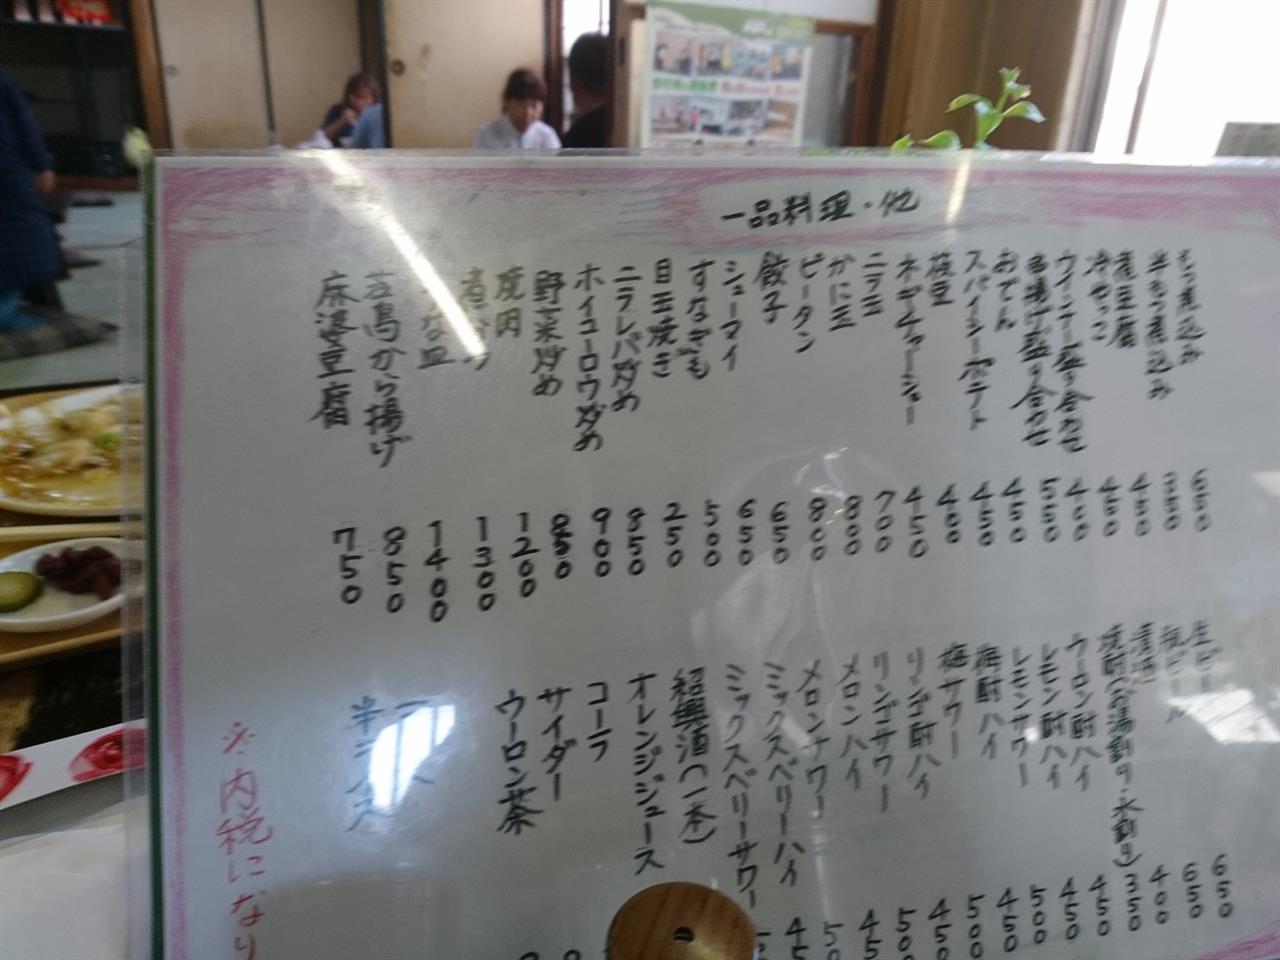 一品料理・他
もつ煮込み 650
半もつ煮込み 350
煮豆腐 450
冷やっこ 450
ウインナー盛り合わせ 400
揚げ盛り合わせ 550
おでん 450
スパイシーポテト 450
枝豆 400
ネギチャーシュー 450
ニラ玉 700
かに玉 800
ピータン 800
餃子 650
シューマイ 650
すなぎも 500
目玉焼き 250
ニラレバ炒め 850
ホイコーロウ炒め 900
野菜炒め 850
焼肉 1200
1300
皿 1400
若鳥から揚げ 850
麻婆豆腐 750
生ビール 650
瓶ビール 650
清酒 400
焼酎(お湯割り・水割り) 350
ウーロン酎ハイ 450
レモン酎ハイ 450
レモンサワー 500
梅酎ハイ 450
梅サワー 500
リンゴ酎ハイ 450
リンゴサワー 500
メロンハイ 45
メロンサワー 50
ミックスベリーハイ 45
ミックスベリーサワー
紹興酒(一本)
オレンジジュース
コーラ
サイダー
ウーロン茶
半ライス
※内税になり